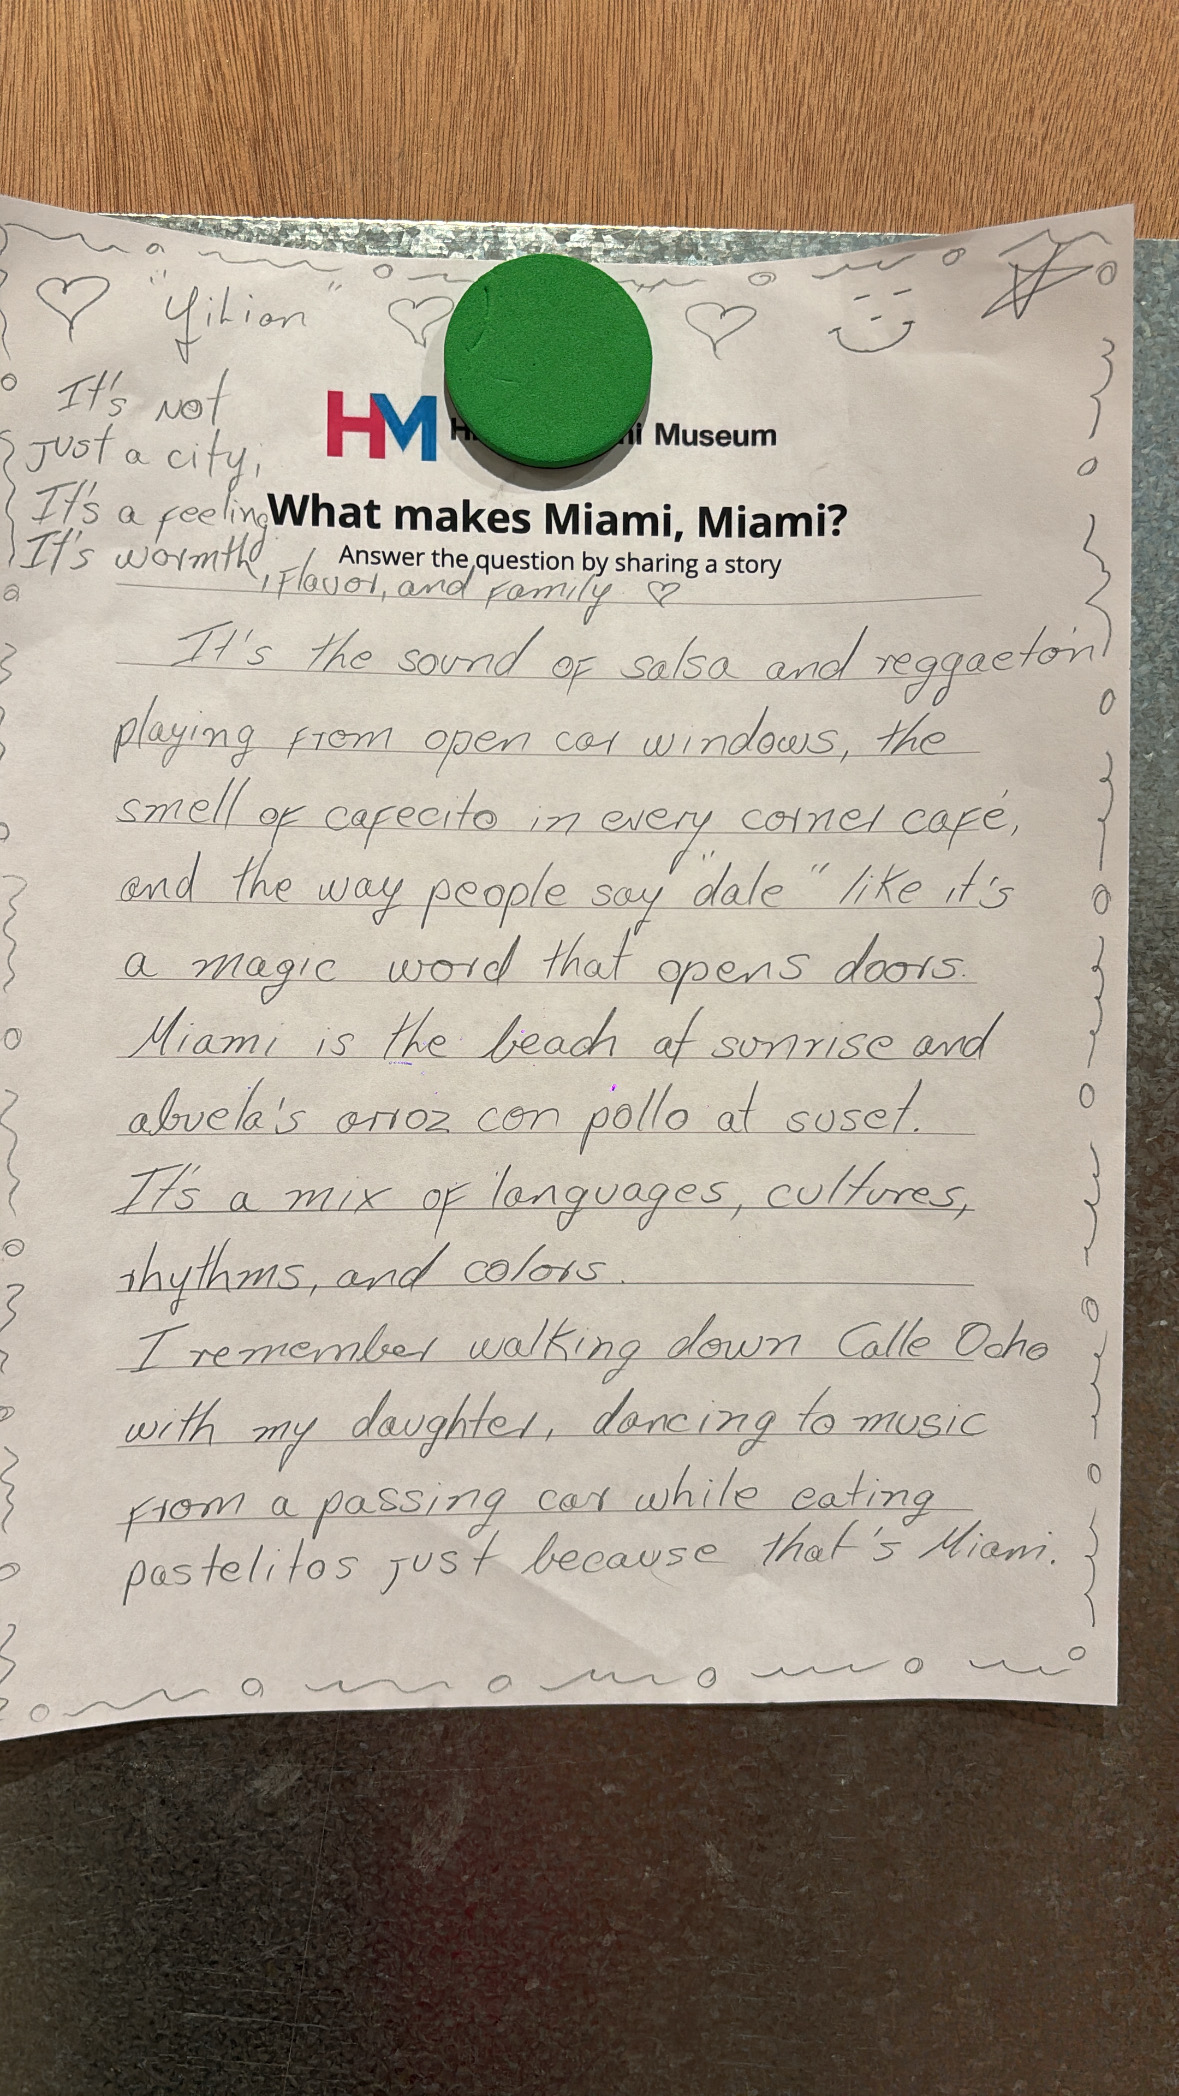 "Yilian"
It's not
just a city,
It's a feeling
It's warmth, flavor, and family
HM Museum
What makes Miami, Miami?
Answer the question by sharing a story
It's the sound of salsa and reggaetón
playing from open car windows, the
smell of cafecito in every corner café,
and the way people say "dale" like it's
a magic word that opens doors.
Miami is the beach at sunrise and
abuela's arroz con pollo at suset.
It's a mix of languages, cultures,
rhythms, and colors.
I remember walking down Calle Ocho
with my daughter, dancing to music
from a passing car while eating
pastelitos just because that's Miami.